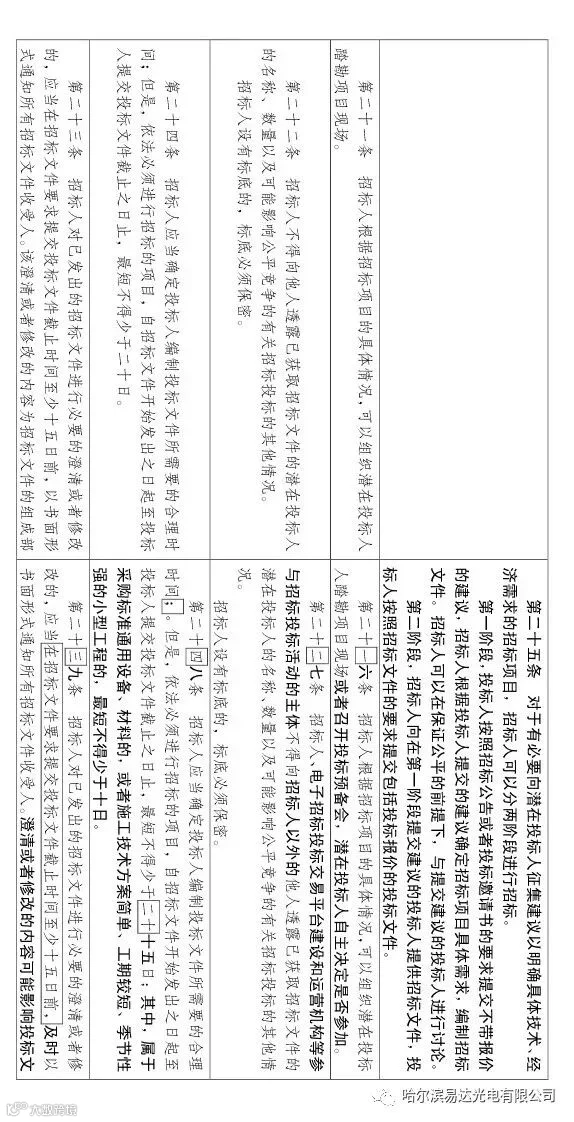 第二十五条　对于有必要向潜在投标人征集建议以明确具体技术、经
济需求的招标项目，招标人可以分两阶段进行招标。
第一阶段，投标人按照招标公告或者投标邀请书的要求提交不带报价
的建议，招标人根据投标人提交的建议确定招标项目具体需求，编制招标
文件。招标人可以在保证公平的前提下，与提交建议的投标人进行讨论。
第二阶段，招标人向在第一阶段提交建议的投标人提供招标文件，投
标人按照招标文件的要求提交包括投标报价的投标文件。
第二十一条　招标人根据招标项目的具体情况，可以组织潜在投标人
踏勘项目现场。
第二十一六条　招标人根据招标项目的具体情况，可以组织潜在投标
人踏勘项目现场或者召开投标预备会，潜在投标人自主决定是否参加。
第二十二条　招标人不得向他人透露已获取招标文件的潜在投标人
的名称、数量以及可能影响公平竞争的有关招标投标的其他情况。
招标人设有标底的，标底必须保密。
第二十二七条　招标人、电子招标投标交易平台建设和运营机构等参
与招标投标活动的主体不得向招标人以外的他人透露已获取招标文件的
潜在投标人的名称、数量以及可能影响公平竞争的有关招标投标的其他情
况。
招标人设有标底的，标底必须保密。
第二十四条　招标人应当确定投标人编制投标文件所需要的合理时
间；但是，依法必须进行招标的项目，自招标文件开始发出之日起至投标
人提交投标文件截止之日止，最短不得少于二十日。
第二十四八条　招标人应当确定投标人编制投标文件所需要的合理
时间；。但是，依法必须进行招标的项目，自招标文件开始发出之日起至
投标人提交投标文件截止之日止，最短不得少于二十十五日；其中，属于
采购标准通用设备、材料的，或者施工技术方案简单、工期较短、季节性
强的小型工程的，最短不得少于十日。
第二十三条　招标人对已发出的招标文件进行必要的澄清或者修改
的，应当在招标文件要求提交投标文件截止时间至少十五日前，以书面形
式通知所有招标文件收受人。该澄清或者修改的内容为招标文件的组成部
第二十三九条　招标人对已发出的招标文件进行必要的澄清或者修
改的，应当在招标文件要求提交投标文件截止时间至少十五日前，及时以
书面形式通知所有招标文件收受人。澄清或者修改的内容可能影响投标文
哈尔滨易达光电有限公司
大数跨境